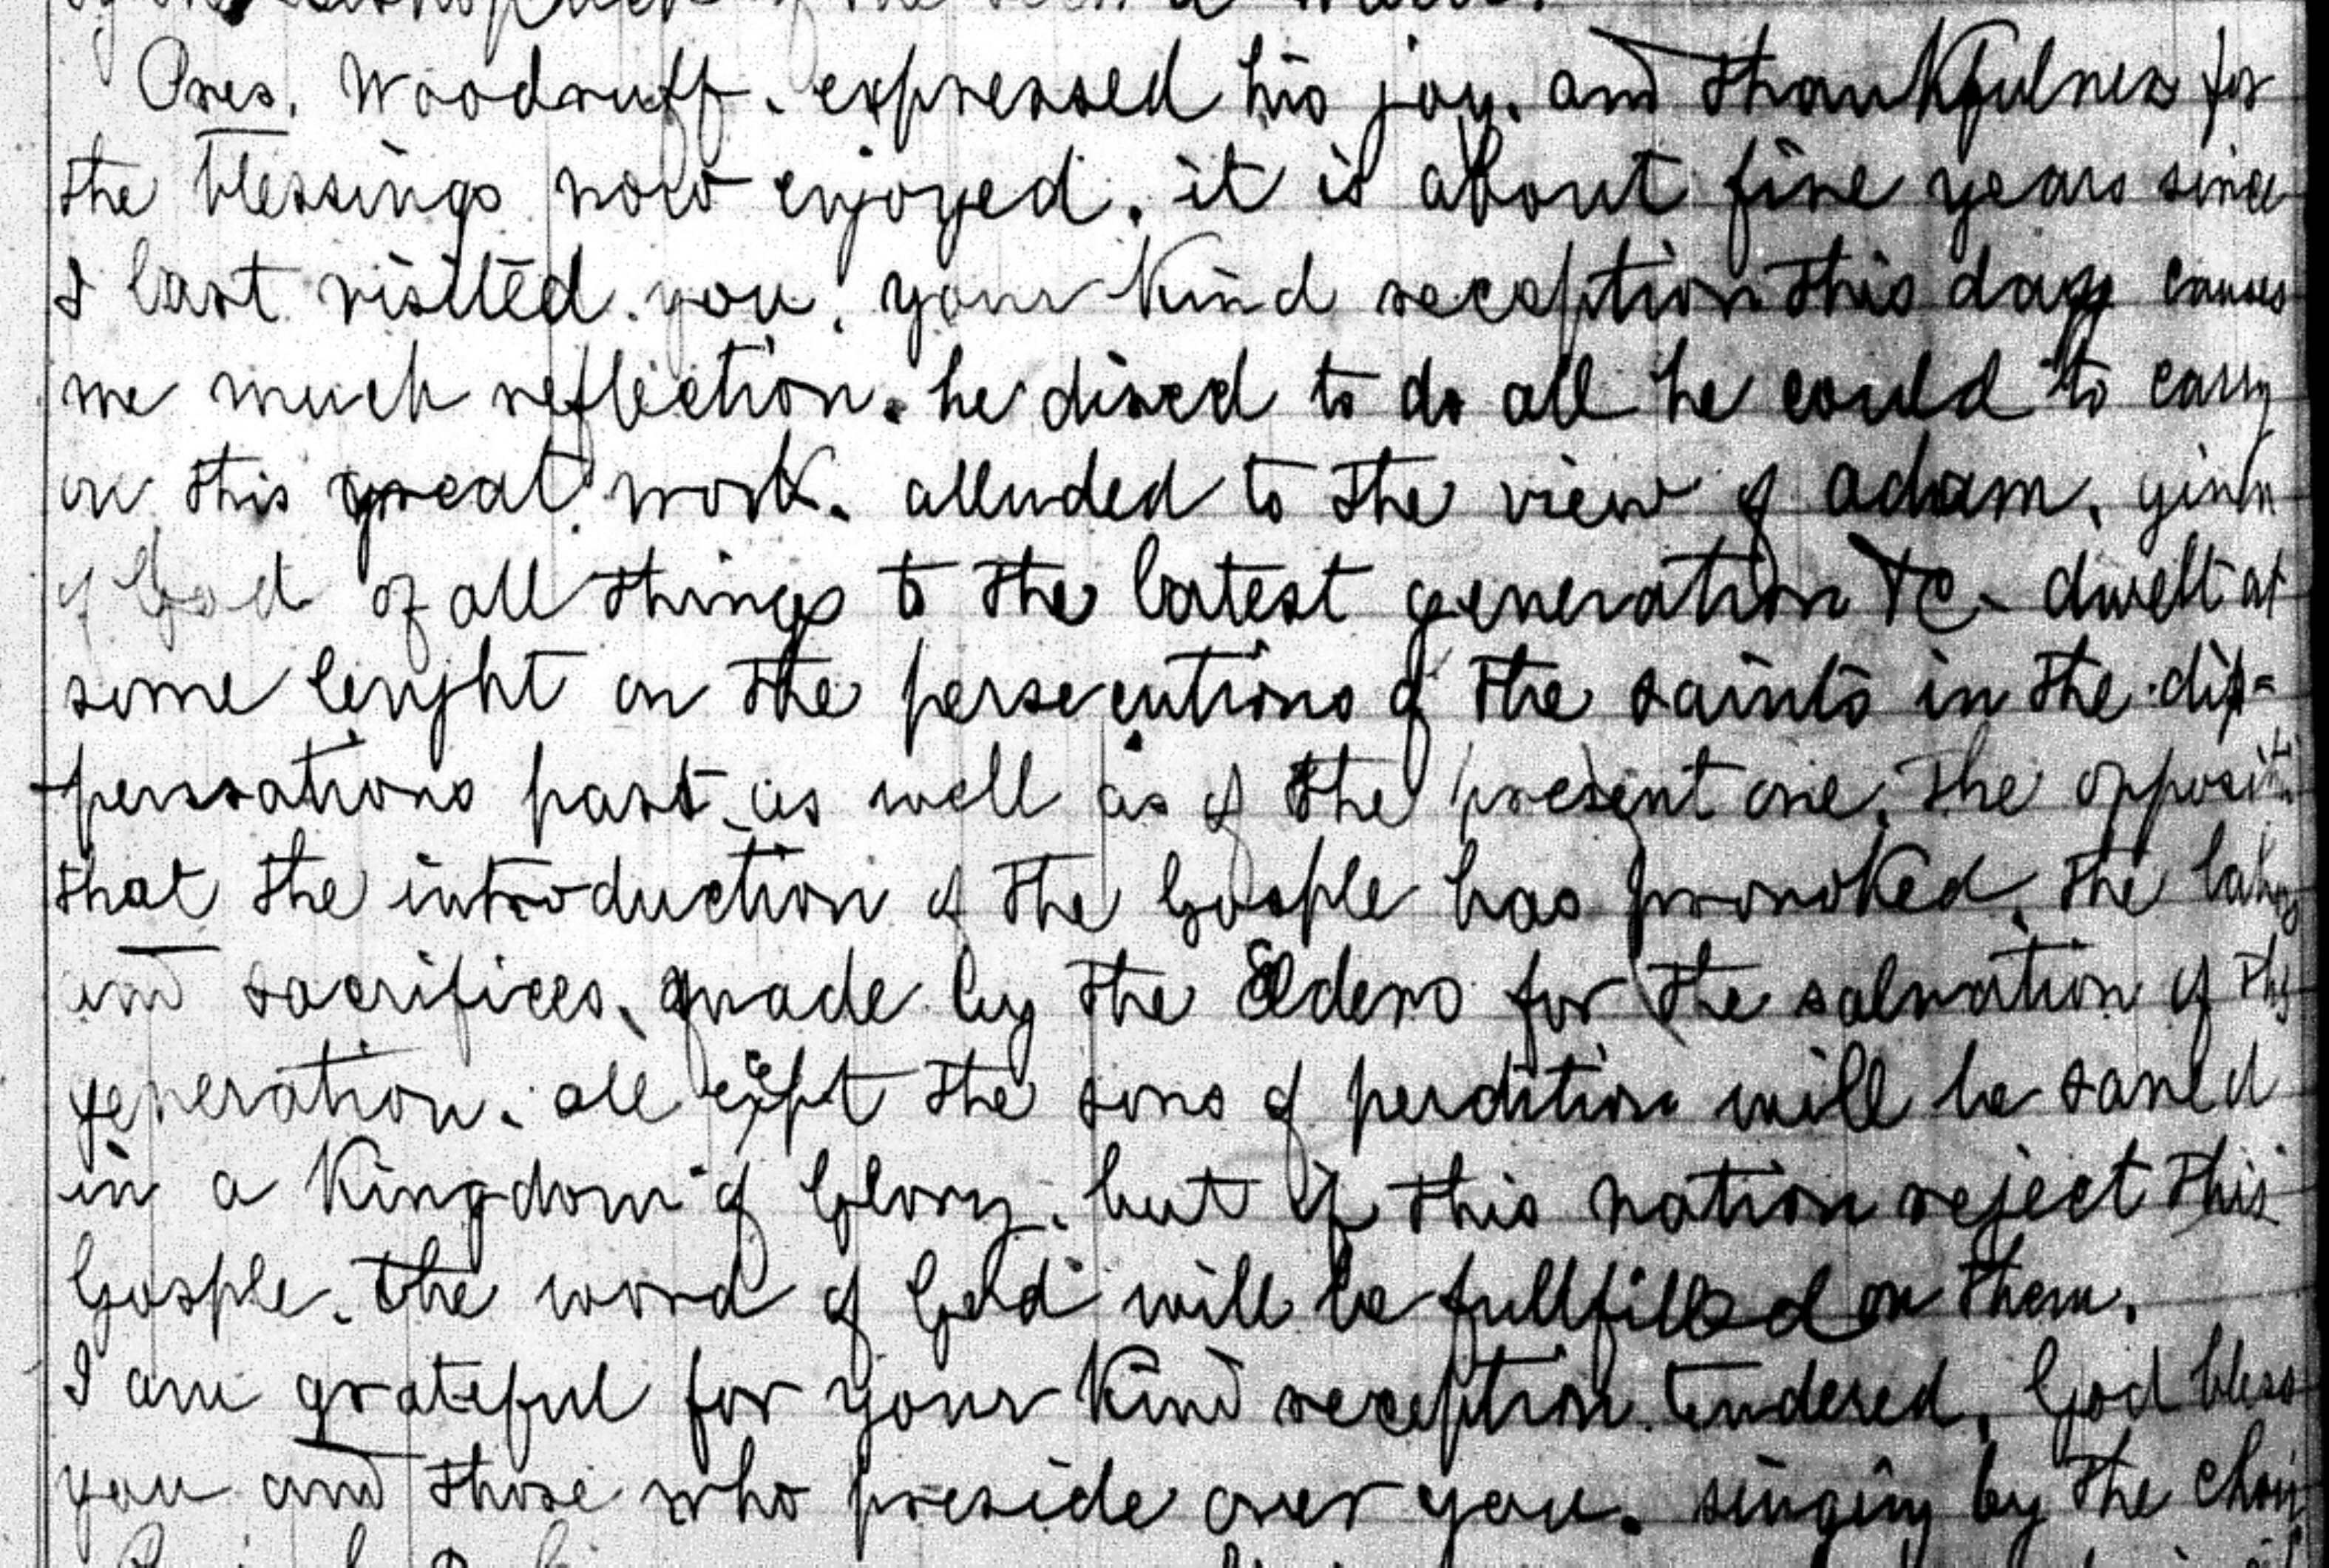 Pres. Woodruff. expressed his joy. and thankfulness for
the blessings now enjoyed. it is about five years since
I last visited you. your kind reception this day causes
me much reflection. he disred to do all he could to carry
on this great work. alluded to the view of adam, givin
of God of all things to the latest generation &c. dwelt at
some lenght on the persecutions of the saints in the dis=
pensations past as well as of the present one. The oppositi
that the introduction of the Gosple has provoked. The labors
and sacrifices, made by the Elders for the salvation of this
generation. all exept the sons of perdition will be saved
in a Kingdom of Glory. but if this nation reject this
Gosple. the word of God will be fullfilled on them.
I am grateful for your kind reception tendered. God bless
you and those who preside over you. singing by the choir